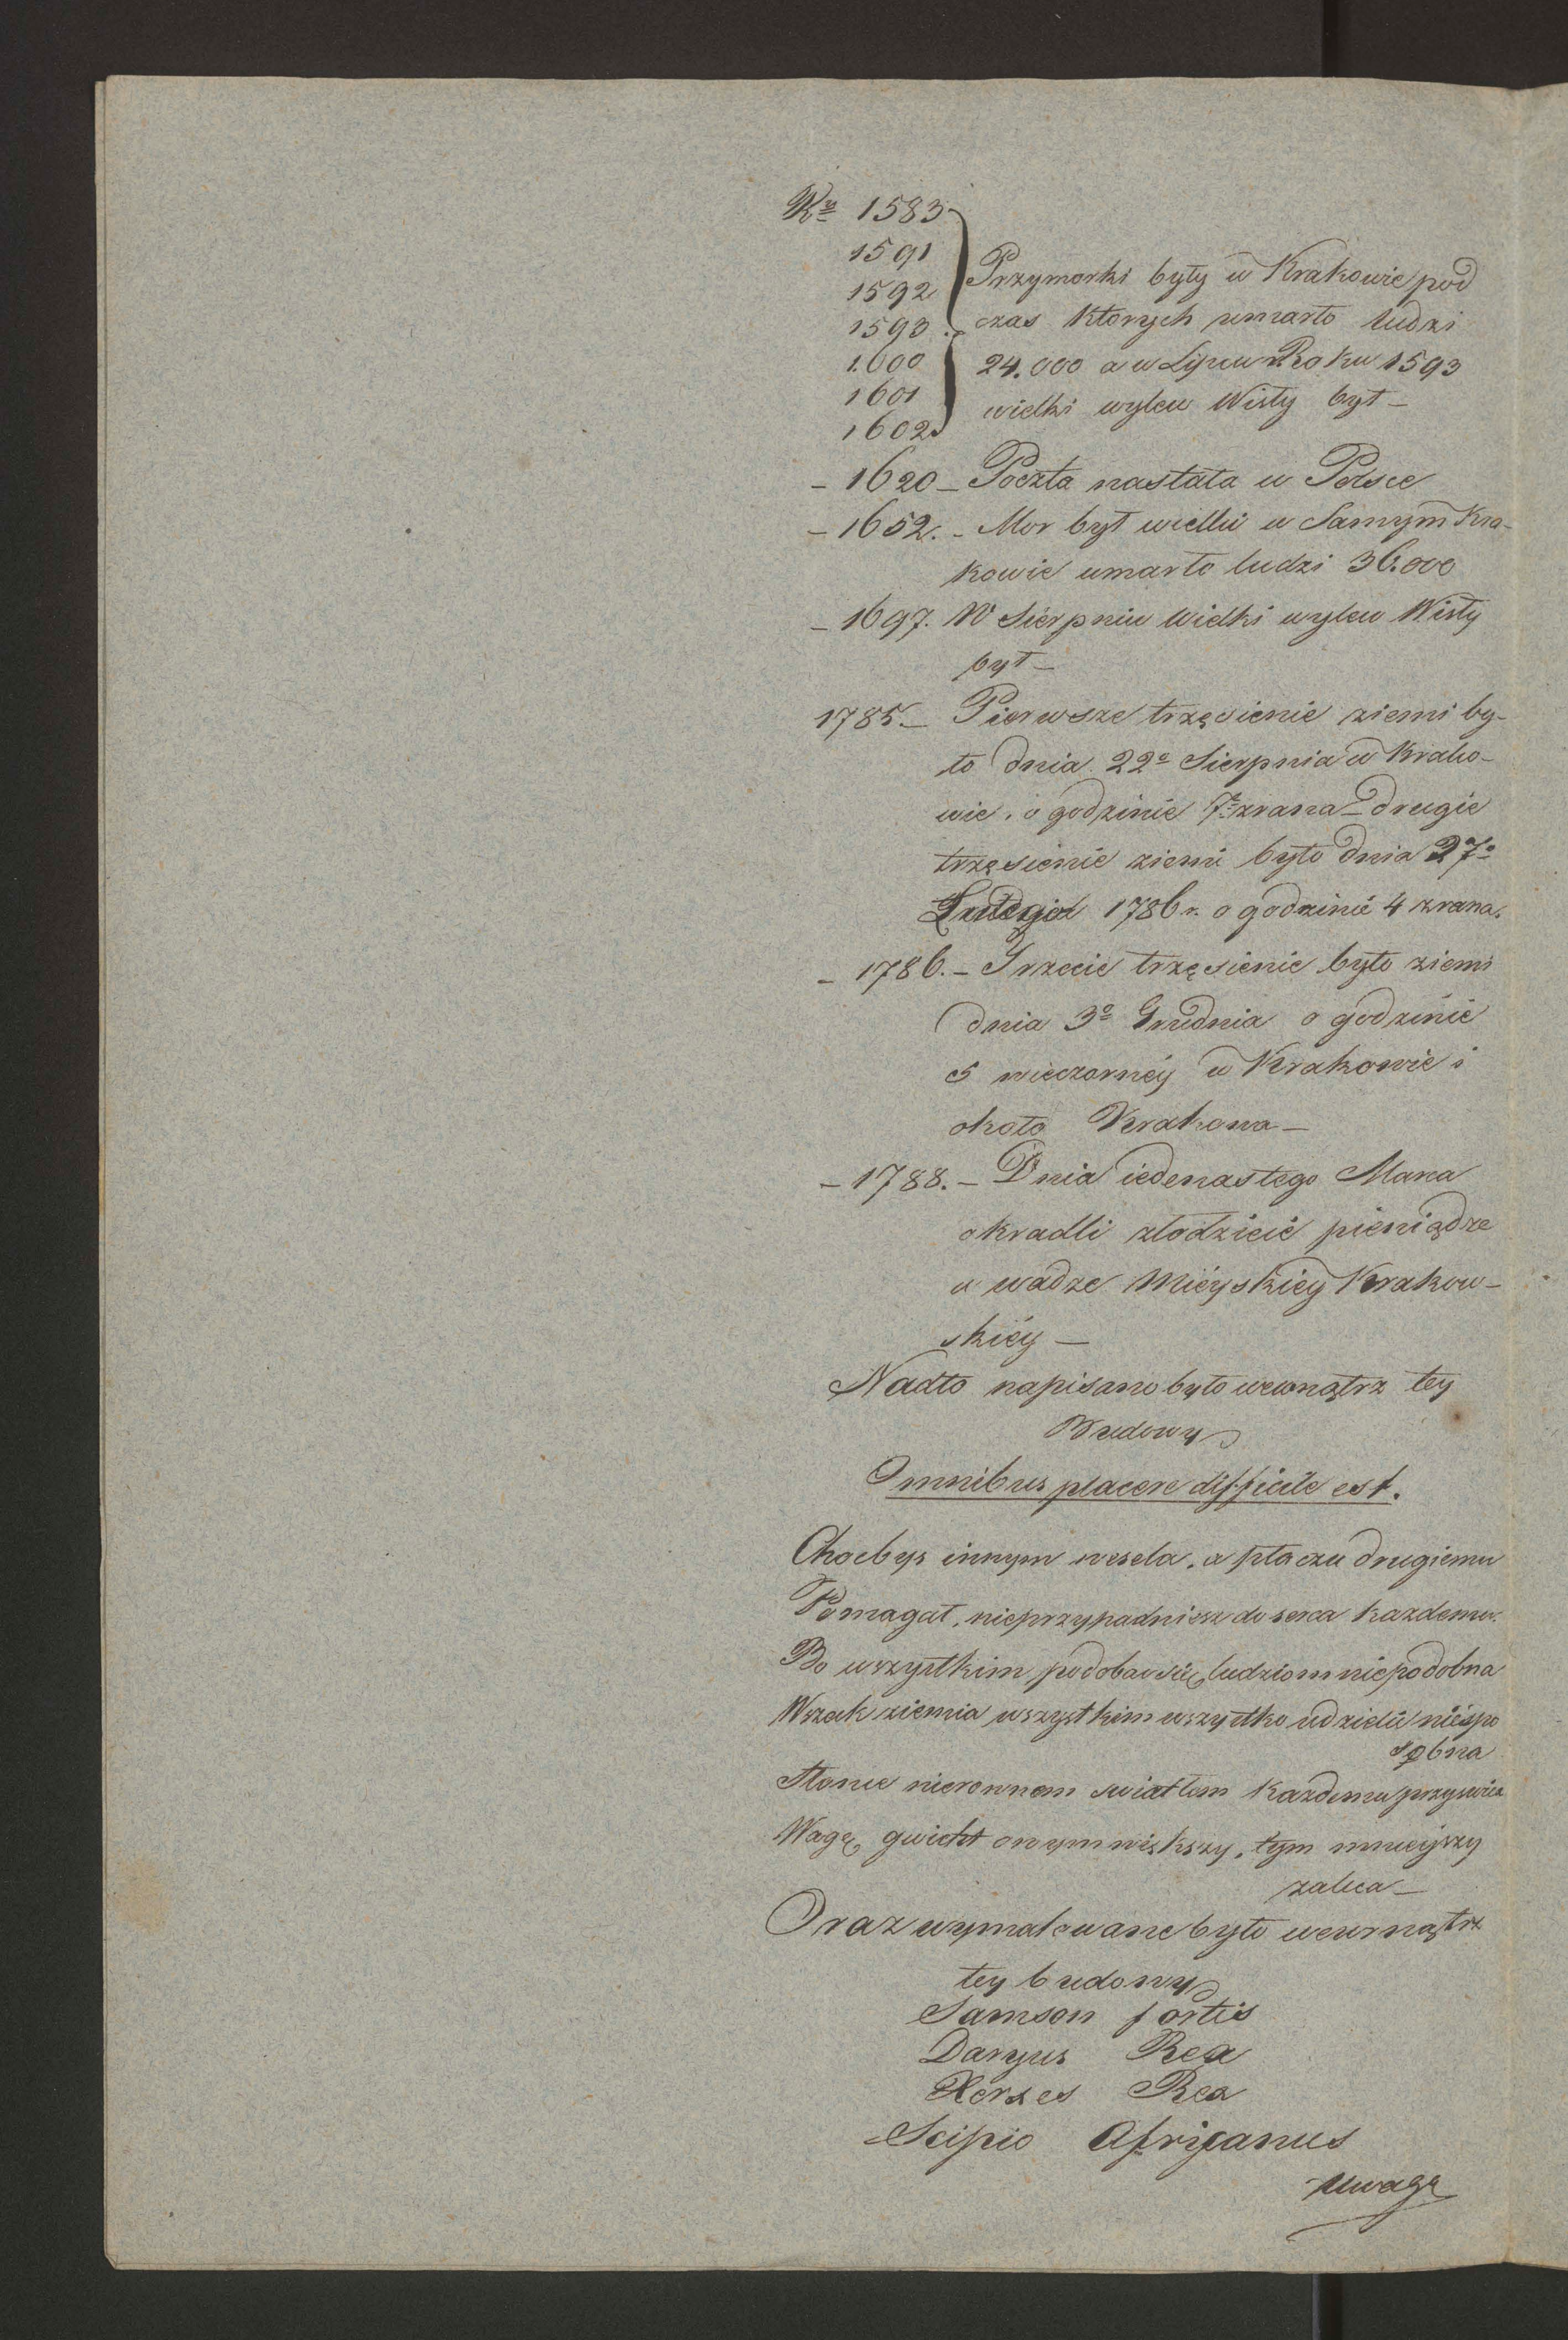 Ru 1583
1591
1592
1593
1600
1601
1602
Przymorki były w Krakowie pod
czas których umarło ludzi
24.000 a w Lipcu Roku 1593
wielki wylew Wisły był –
– 1620 – Poczta nastała w Polsce
– 1652. – Mor był wielki w Samym Kra-
kowie umarło ludzi 36.000
– 1697. W Sierpniu wielki wylew Wisły
był –
1785. – Pierwsze trzęsienie ziemi by-
ło dnia 22o Sierpnia w Krako-
wie, o godzinie 7 zrana – drugie
trzęsienie ziemi było dnia 27o
Lutego 1786 r. o godzinie 4 zrana.
– 1786. – Trzecie trzęsienie było ziemi
dnia 3o Grudnia o godzinie
5 wieczornéy w Krakowie i
około Krakowa –
– 1788. – Dnia iedenastego Marca
okradli złodzieie pieniądze
w wadze Mieyskiey Krakow-
skiéy –
Nadto napisano było wewnątrz tey
Budowy
Omnibus placere difficile est.
Chocbys innym wesela, a płaczu drugiemu
Pomagał, nieprzypadniesz do serca kazdemu.
Bo wszystkim podobac się ludziom niepodobna
Wszak ziemia wszystkim wszystko udzielic niespo
sobna
Słonce nierownem swiatłem kazdemu przyswieca
Wagę gwicht onym większy, tym mnieyszy
zaleca –
Oraz wymalowane było wewnątrz
tey budowy
Samson fortis
Daryus Rex
Xerxes Rex
Scipio Africanus
Uwagę